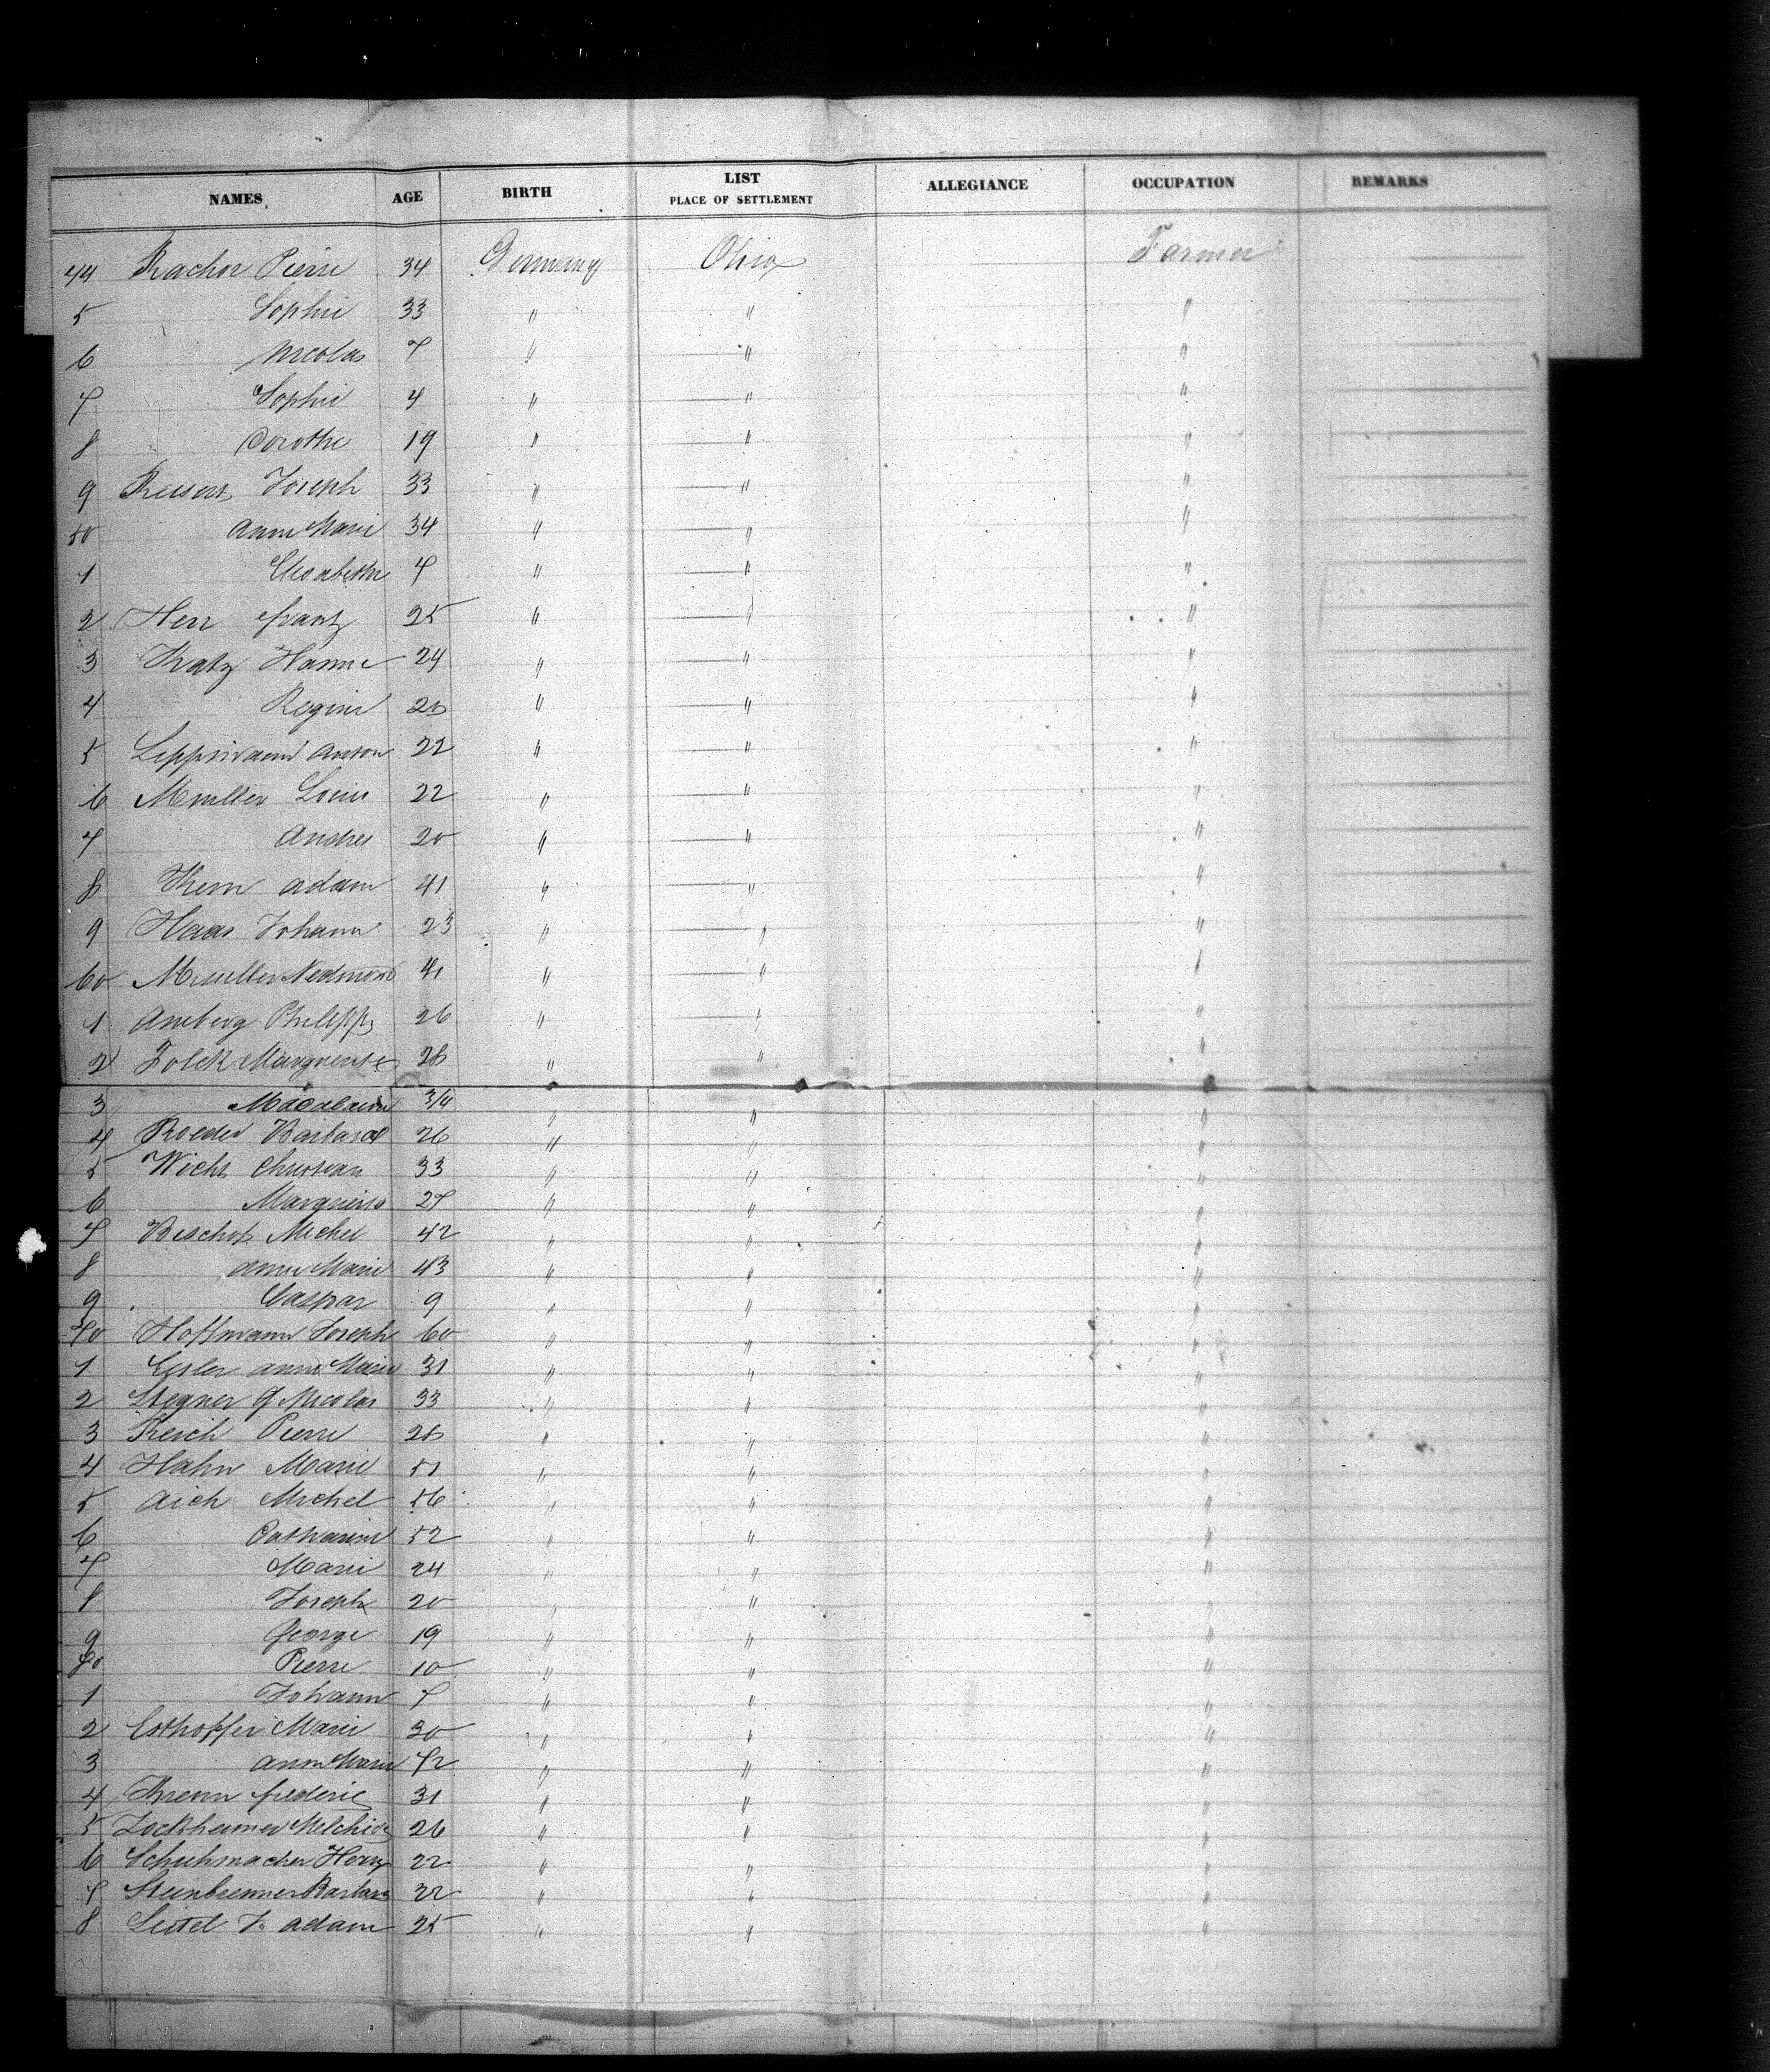 NAMES AGE BIRTH LIST PLACE OF SETTLEMENT ALLEGIANCE OCCUPATION REMARKS
44 Rachor Pierre 34 Germany Ohio Farmer
5 Sophie 33 " " "
6 Nicolas 7 " " "
7 Sophie 4 " " "
8 Dorothe 19 " " "
9 Joseph 33 " " "
50 Anne Marie 34 " " "
1 Elisabethe 7 " " "
2 Herr frantz 25 " " "
3 Katz Hanne 24 " " "
4 Regine 20 " " "
5 Anton 22 " " "
6 Muller Louis 22 " " "
7 Andres 20 " " "
8 Kern adam 41 " " "
9 Haas Johann 23 " " "
60 Muller 41 " " "
1 Amberg Philipp 26 " " "
2 Folck Marguerite 28 " " "
3 3/4 " " "
4 Roeder Barbara 26 " " "
5 Christian 33 " " "
6 Marguerite 27 " " "
7 Bischof Michel 42 " " "
8 anne Marie 43 " " "
9 Caspar 9 " " "
70 Hoffmann Joseph 60 " " "
1 anne Marie 31 " " "
2 Stegner G Nicolas 33 " " "
3 Pierre 26 " " "
4 Hahn Marie 51 " " "
5 Aich Michel 56 " " "
6 Catharine 52 " " "
7 Marie 24 " " "
8 Joseph 20 " " "
9 George 19 " " "
80 Pierre 10 " " "
1 Johann 7 " " "
2 Esthoffer Marie 30 " " "
3 anne Marie 72 " " "
4 frederic 31 " " "
5 Zockheimer Melchior 26 " " "
6 Schuhmacher Henry 22 " " "
7 Steinbrenner Barbara 22 " " "
8 Seitel J. adam 25 " " "